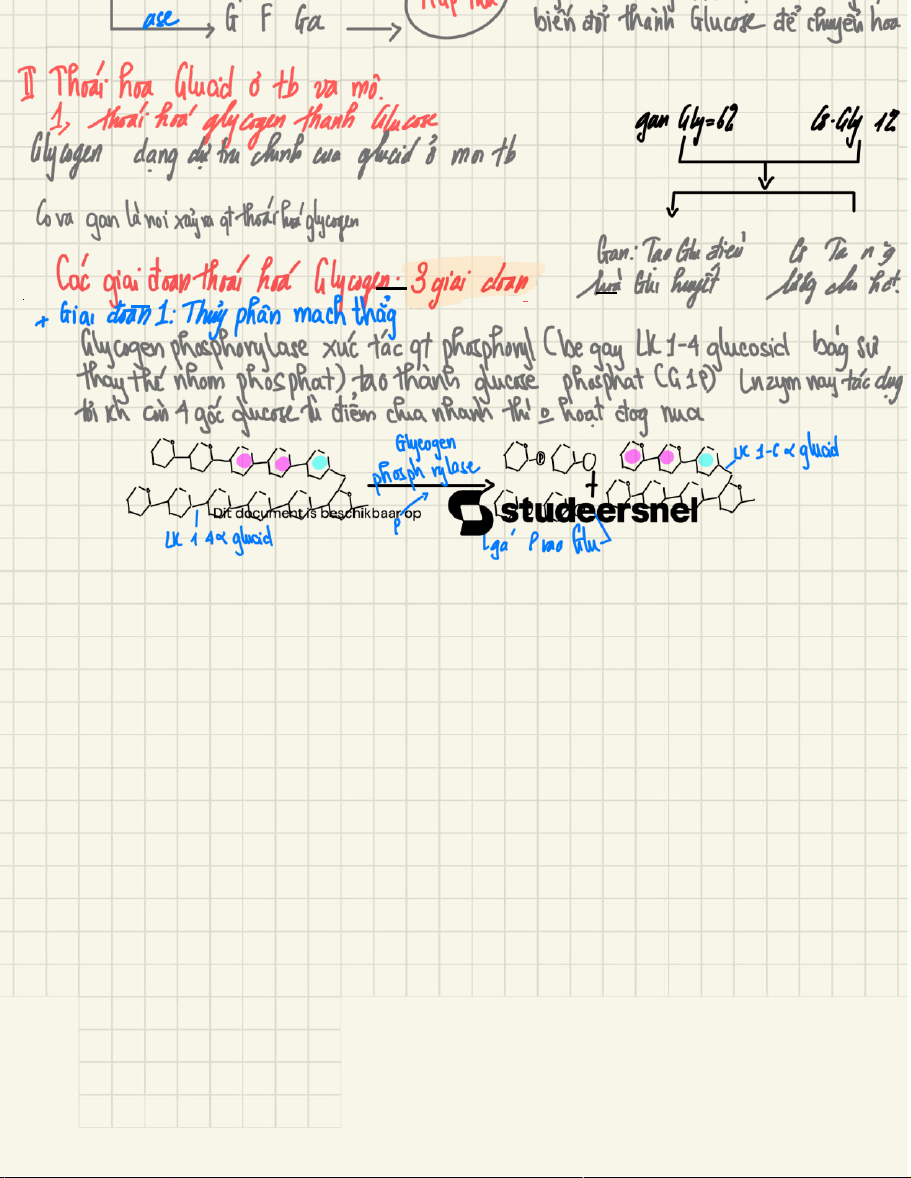 ase G F Ga
biến đổi thành Glucose để chuyển hoa
II Thoái hoa Glucid ở tb va mô.
1, thoái hoá glycogen thanh Glucose
Glycogen dạng dự tru chinh cua glucid ở mon tb
gan Gly=6% Cs.Gly 1%
Co va gan là noi xảy ra qt thoái hoá glycogen
Gan: Tao Glu điều
hoà Glu huyết
Các giai đoan thoái hoá Glycogen. 3 giai doan
+ Giai đoan 1: Thuỷ phân mach thẳg
Glycogen phosphorylase xuc tác qt phosphoryl (be gay LK 1-4 glucosid bằg sư
thay thế nhom phosphat) tao thành glucose phosphat (G1P) Enzym nay tác dụg
tới kh còn 4 gốc glucose từ điểm chia nhanh thì hoạt đog nua
Glycogen
phosph rylase
P
LK 1-6 α glucid
LK 1 4α glucid
gắ P vao Glu
Dit document is beschikbaar op
studeersnel